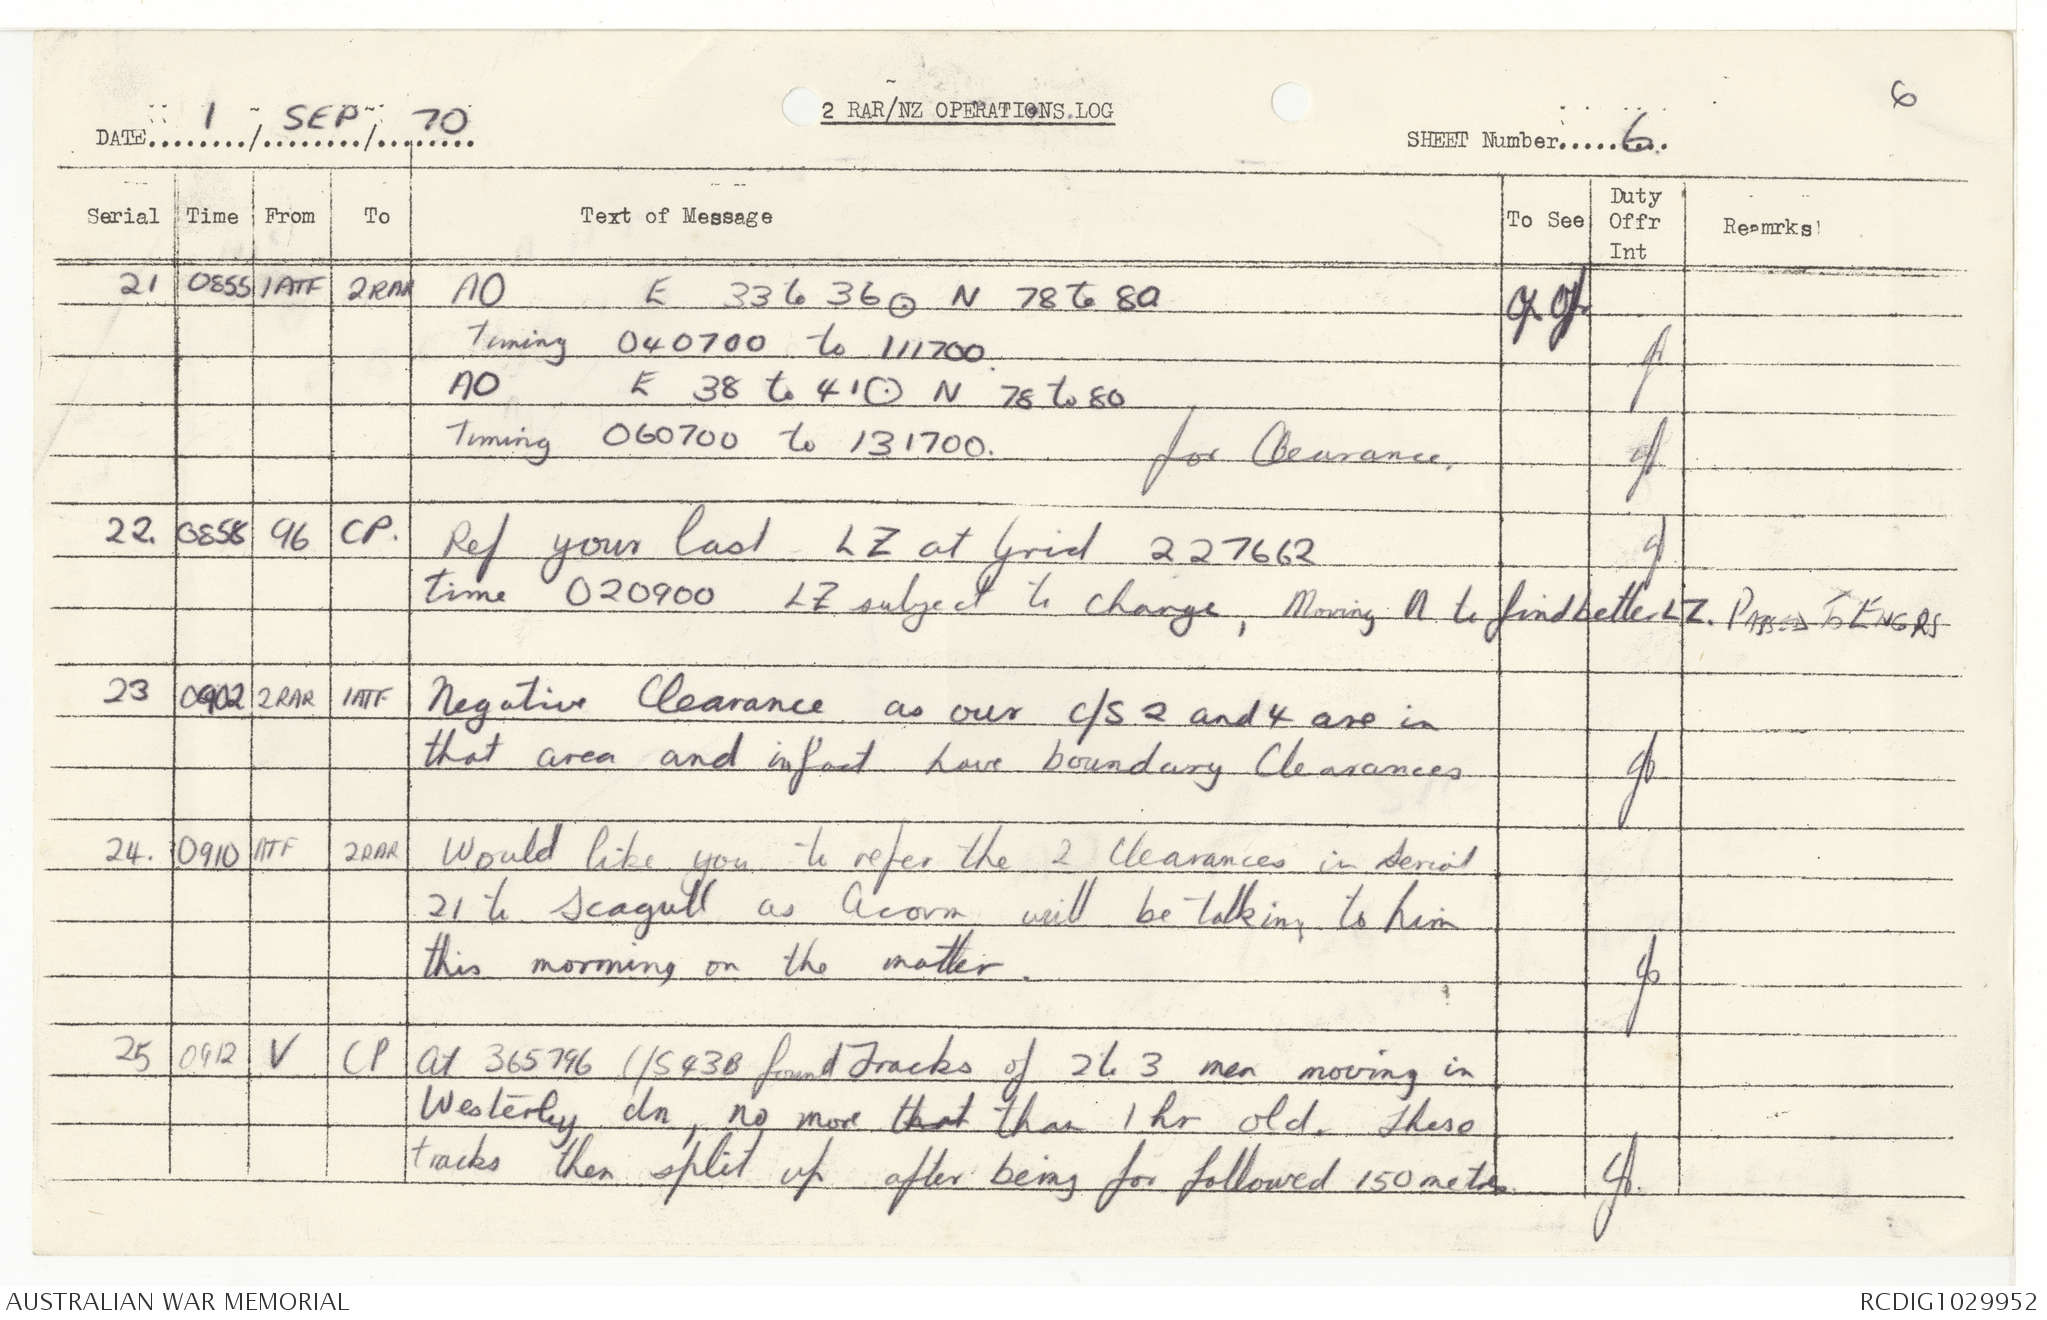 6
2 RAR/NZ OPERATIONS LOG
DATE 1 / SEP / 70
SHEET Number 6
Serial Time From To Text of Message To See Duty Offr Int Remarks
21 0855 1ATF 2RAR AO E 33 to 36 ⊙ N 78 to 80
Timing 040700 to 111700.
AO E 38 to 41 ⊙ N 78 to 80
Timing 060700 to 131700. for Clearance.
22. 0858 96 CP. Ref your last LZ at Grid 227662
time 020900 LZ subject to change, Moving N to find better LZ. PASSED TO ENGRS
23 0902 2RAR 1ATF Negative Clearance as our C/S 2 and 4 are in
that area and infact have boundary Clearances
24. 0910 ATF 2RAR Would like you to refer the 2 Clearances in Serial
21 to Seagull as Acorn will be talking to him
this morning on the matter.
25 0912 V CP At 365796 C/S 43B found Tracks of 2 to 3 men moving in
Westerley dn, no more that than 1 hr old. These
tracks then split up after being for followed 150 metres
AUSTRALIAN WAR MEMORIAL RCDIG1029952